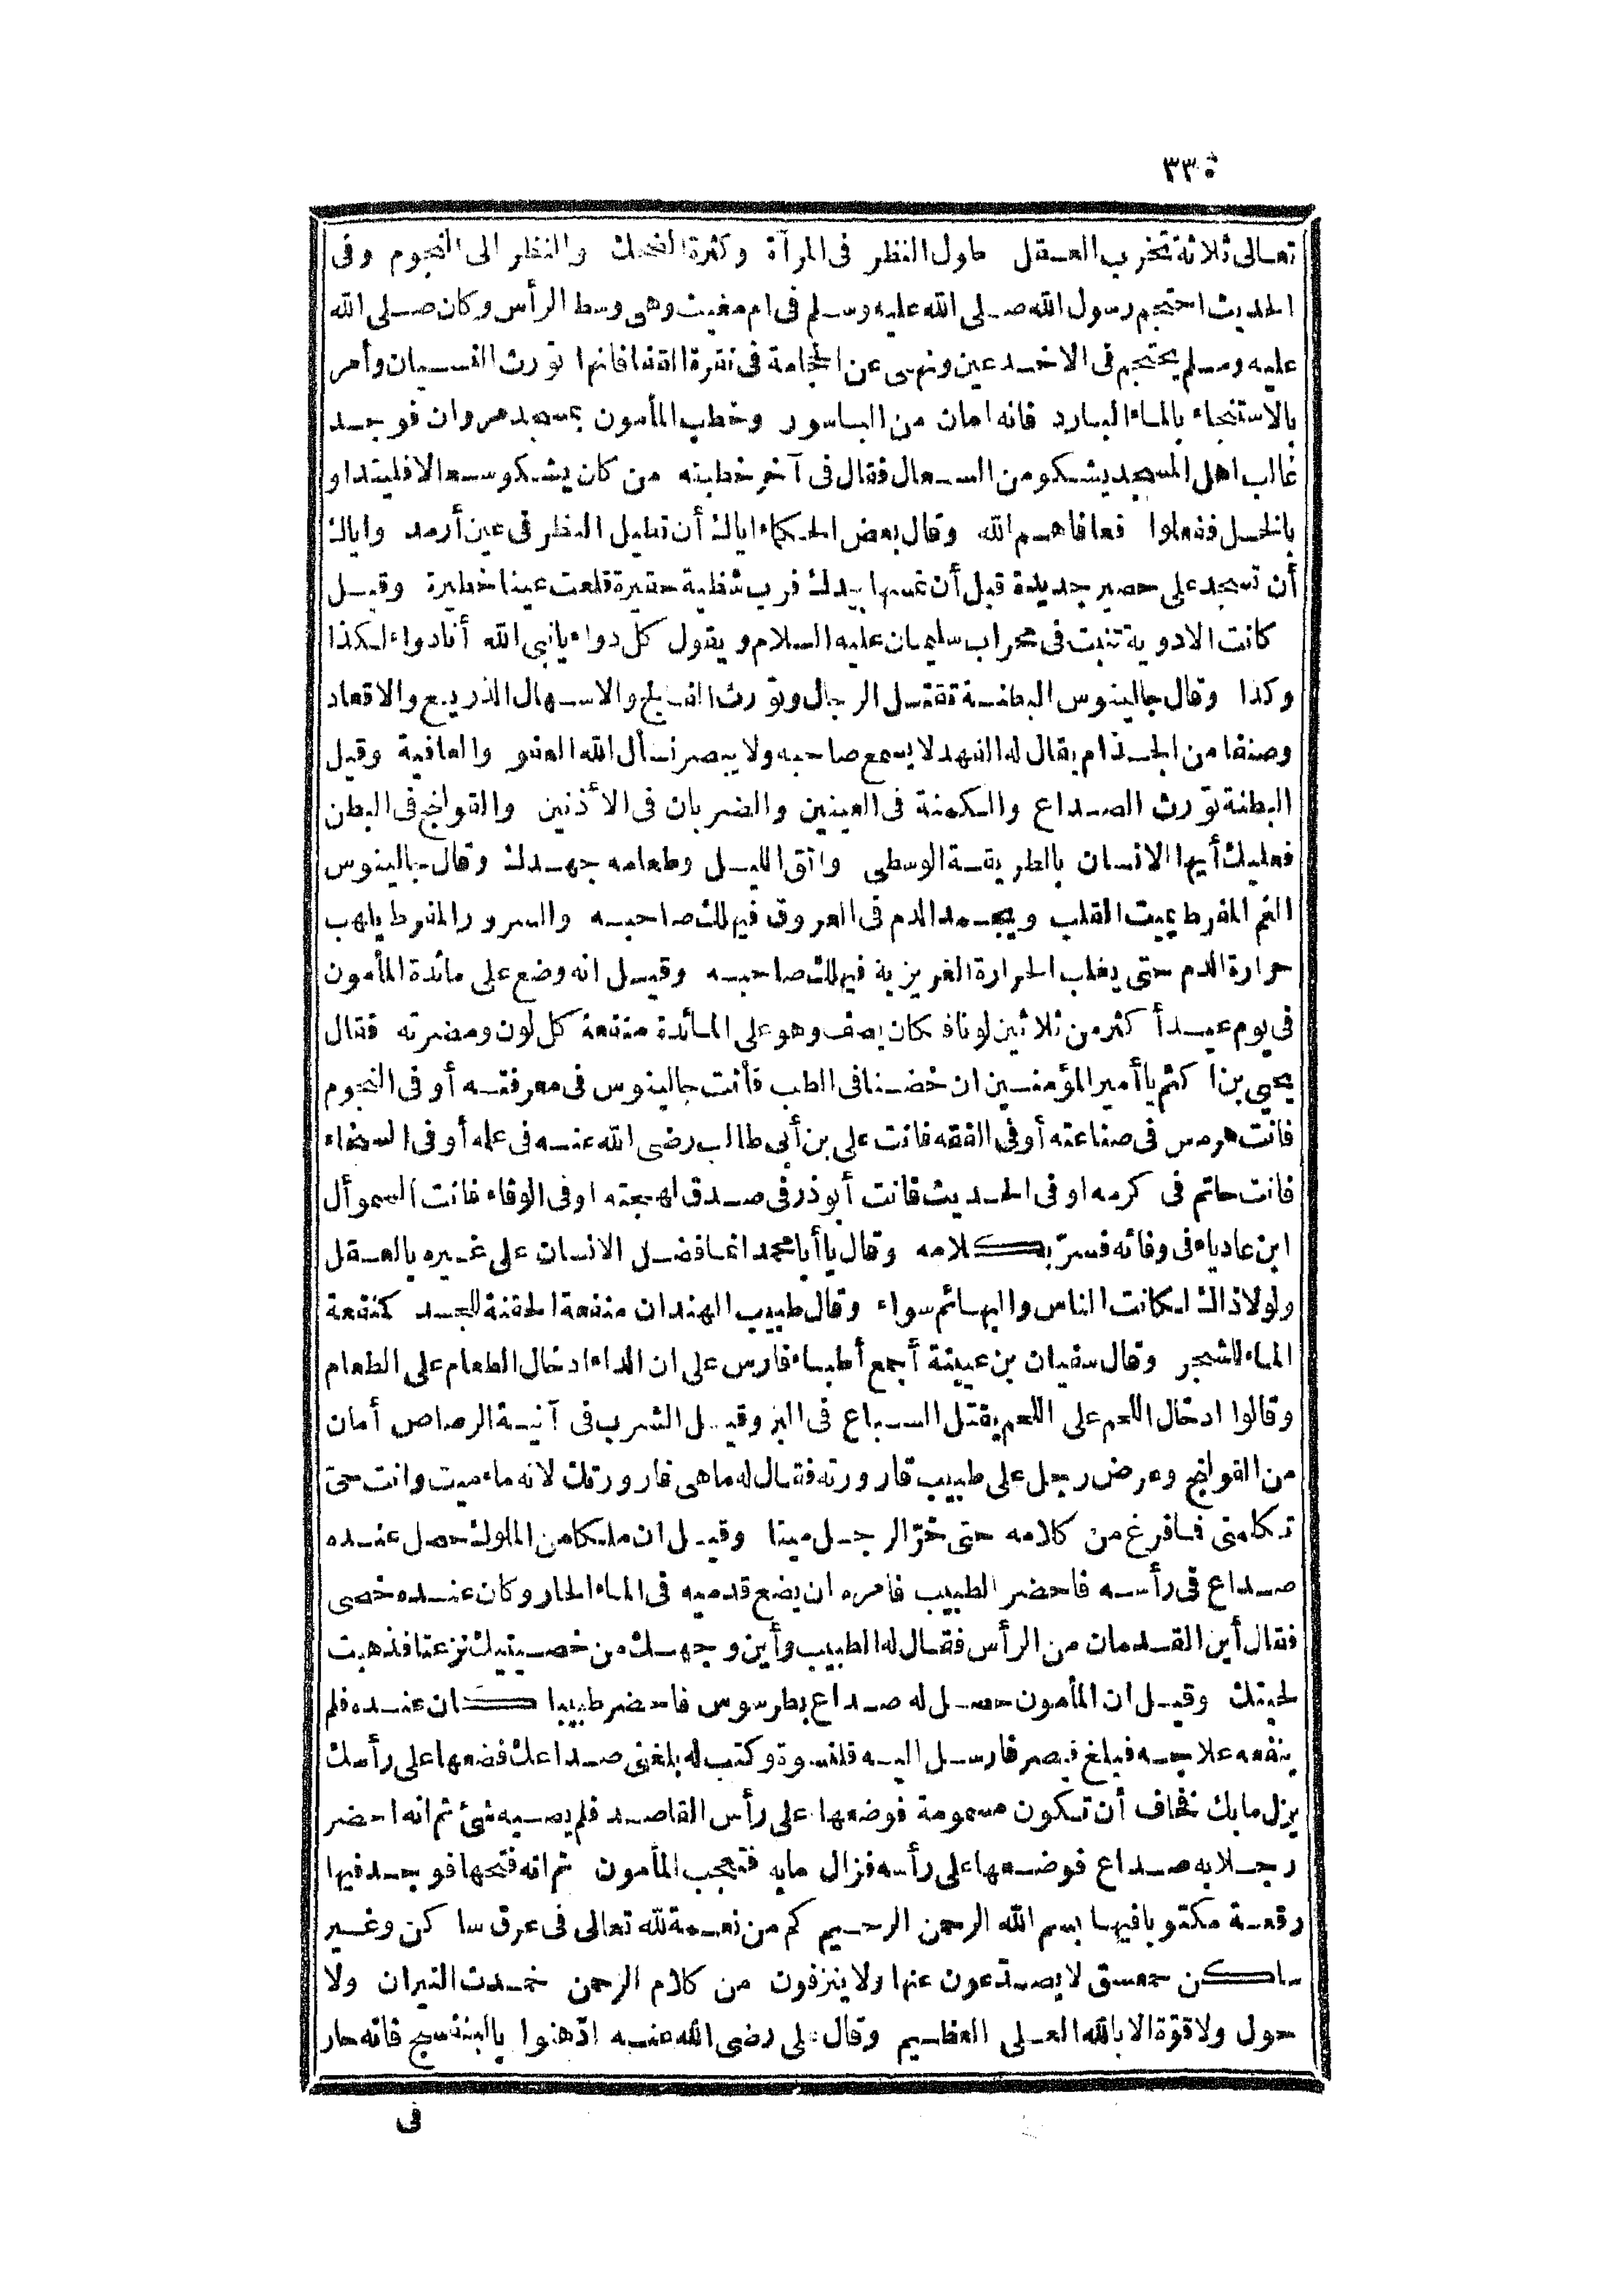 ٣٣٠
تعالى ثلاثة تخرب العقل طول النظر فى المرآة وكثرة الضحك والنظر الى النجوم وفى
الحديث احتجم رسول الله صلى الله عليه وسلم فى ام مغيث وهى وسط الرأس وكان صلى الله
عليه وسلم يحتجم فى الاخدعين ونهى عن الحجامة فى نقرة القفا فانها تورث النسيان وأمر
بالاستنجاء بالماء البارد فانه امان من الباسور وخطب المأمون بمسجد مروان فوجد
غالب اهل المسجد يشكو من السعال فقال فى آخر خطبته من كان يشكو سعالا فليتداو
بالخل ففعلوا فعافاهم الله وقال بعض الحكماء اياك أن تطيل النظر فى عين أرمد واياك
أن تسجد على حصير جديدة قبل أن تمسها بيدك فرب شظية حقيرة قلعت عينا خطيرة وقيل
كانت الادوية تنبت فى محراب سليمان عليه السلام ويقول كل دواء يانبى الله أنا دواء لكذا
وكذا وقال جالينوس البطنة تقتل الرجال وتورث الفالج والاسهال الذريع والاقعاد
وصنفا من الجذام يقال له الفهد لا يسمع صاحبه ولا يبصر نسأل الله العفو والعافية وقيل
البطنة تورث الصداع والكمنة فى العينين والضربان فى الأذنين والقولنج فى البطن
فعليك أيها الانسان بالطريقة الوسطى واتق الليل وطعامه جهدك وقال جالينوس
الغم المفرط يميت القلب ويجمد الدم فى العروق فيهلك صاحبه والسرور المفرط يلهب
حرارة الدم حتى يغلب الحرارة الغريزية فيهلك صاحبه وقيل انه وضع على مائدة المأمون
فى يوم عيد أكثر من ثلاثين لونا فكان يصف وهو على المائدة منفعة كل لون ومضرته فقال
يحيى بن اكثم يا أمير المؤمنين ان خضنا فى الطب فأنت جالينوس فى معرفته أو فى النجوم
فانت هرمس فى صناعته أو فى الفقه فانت على بن أبى طالب رضى الله عنه فى علمه أو فى السخاء
فانت حاتم فى كرمه او فى الحديث فانت أبوذر فى صدق لهجته او فى الوفاء فانت السموأل
ابن عادياء فى وفائه فسرّ بكلامه وقال يا أبا محمد انما فضل الانسان على غيره بالعقل
ولولا ذاك لكانت الناس والبهائم سواء وقال طبيب الهند ان منفعة الحقنة للجسد كمنفعة
الماء للشجر وقال سفيان بن عيينة أجمع أطباء فارس على ان الداء ادخال الطعام على الطعام
وقالوا ادخال اللحم على اللحم يقتل السباع فى البر وقيل الشرب فى آنية الرصاص أمان
من القولنج وعرض رجل على طبيب قارورته فقال له ماهى قارورتك لانه ماء ميت وانت حى
تكلمنى فافرغ من كلامه حتى خرّ الرجل ميتا وقيل ان ملكا من الملوك حصل عنده
صداع فى رأسه فاحضر الطبيب فامره ان يضع قدميه فى الماء الحار وكان عنده خصى
فقال أين القدمان من الرأس فقال له الطبيب وأين وجهك من خصيتيك نزعتا فذهبت
لحيتك وقيل ان المأمون حصل له صداع بطرسوس فاحضر طبيبا كان عنده فلم
ينفعه علاجه فبلغ قيصر فارسل اليه قلنسوة وكتب له بلغنى صداعك فضعها على رأسك
يزل مابك فخاف أن تكون مسمومة فوضعها على رأس القاصد فلم يصبه شئ ثم انه احضر
رجلا به صداع فوضعها على رأسه فزال مابه فتعجب المأمون ثم انه فتحها فوجد فيها
رقعة مكتوبا فيها بسم الله الرحمن الرحيم كم من نعمة لله تعالى فى عرق ساكن وغير
ساكن حمعسق لا يصدّعون عنها ولا ينزفون من كلام الرحمن خمدت النيران ولا
حول ولا قوّة الا بالله العلى العظيم وقال على رضى الله عنه ادّهنوا بالبنفسج فانه حار
فى